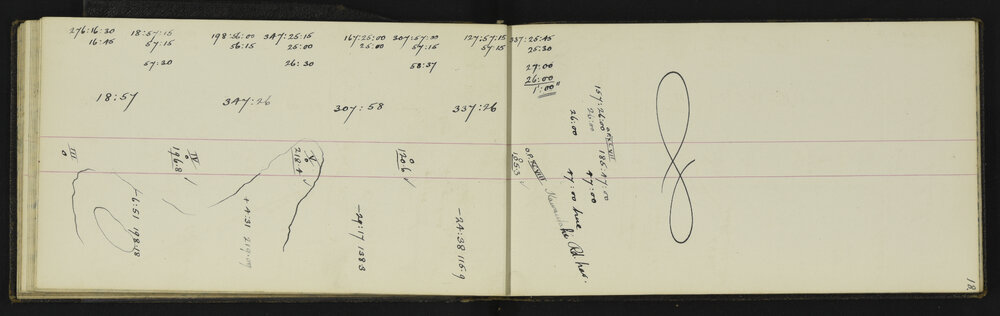 276:16:30 18:57:15 198:56:00 347:25:15 167:25:00 307:57:30 127:57:15 337:25:45
16:45 57:15 56:15 25:00 25:00 57:15 57:15 25:30
57:30 26:30 58:37 27:00
26:00
1':00"
18:57 347:26 307:58 337:26
157:26:00 186:47:00
26:00 47:00
26:00 47:00 true
III
0
IV
0
196.8
V
0
218.4
0
120.6
0
185.3
Rd. hes.
-6:51 198.18
+4:31 219.09
-24:38 115.9
18.